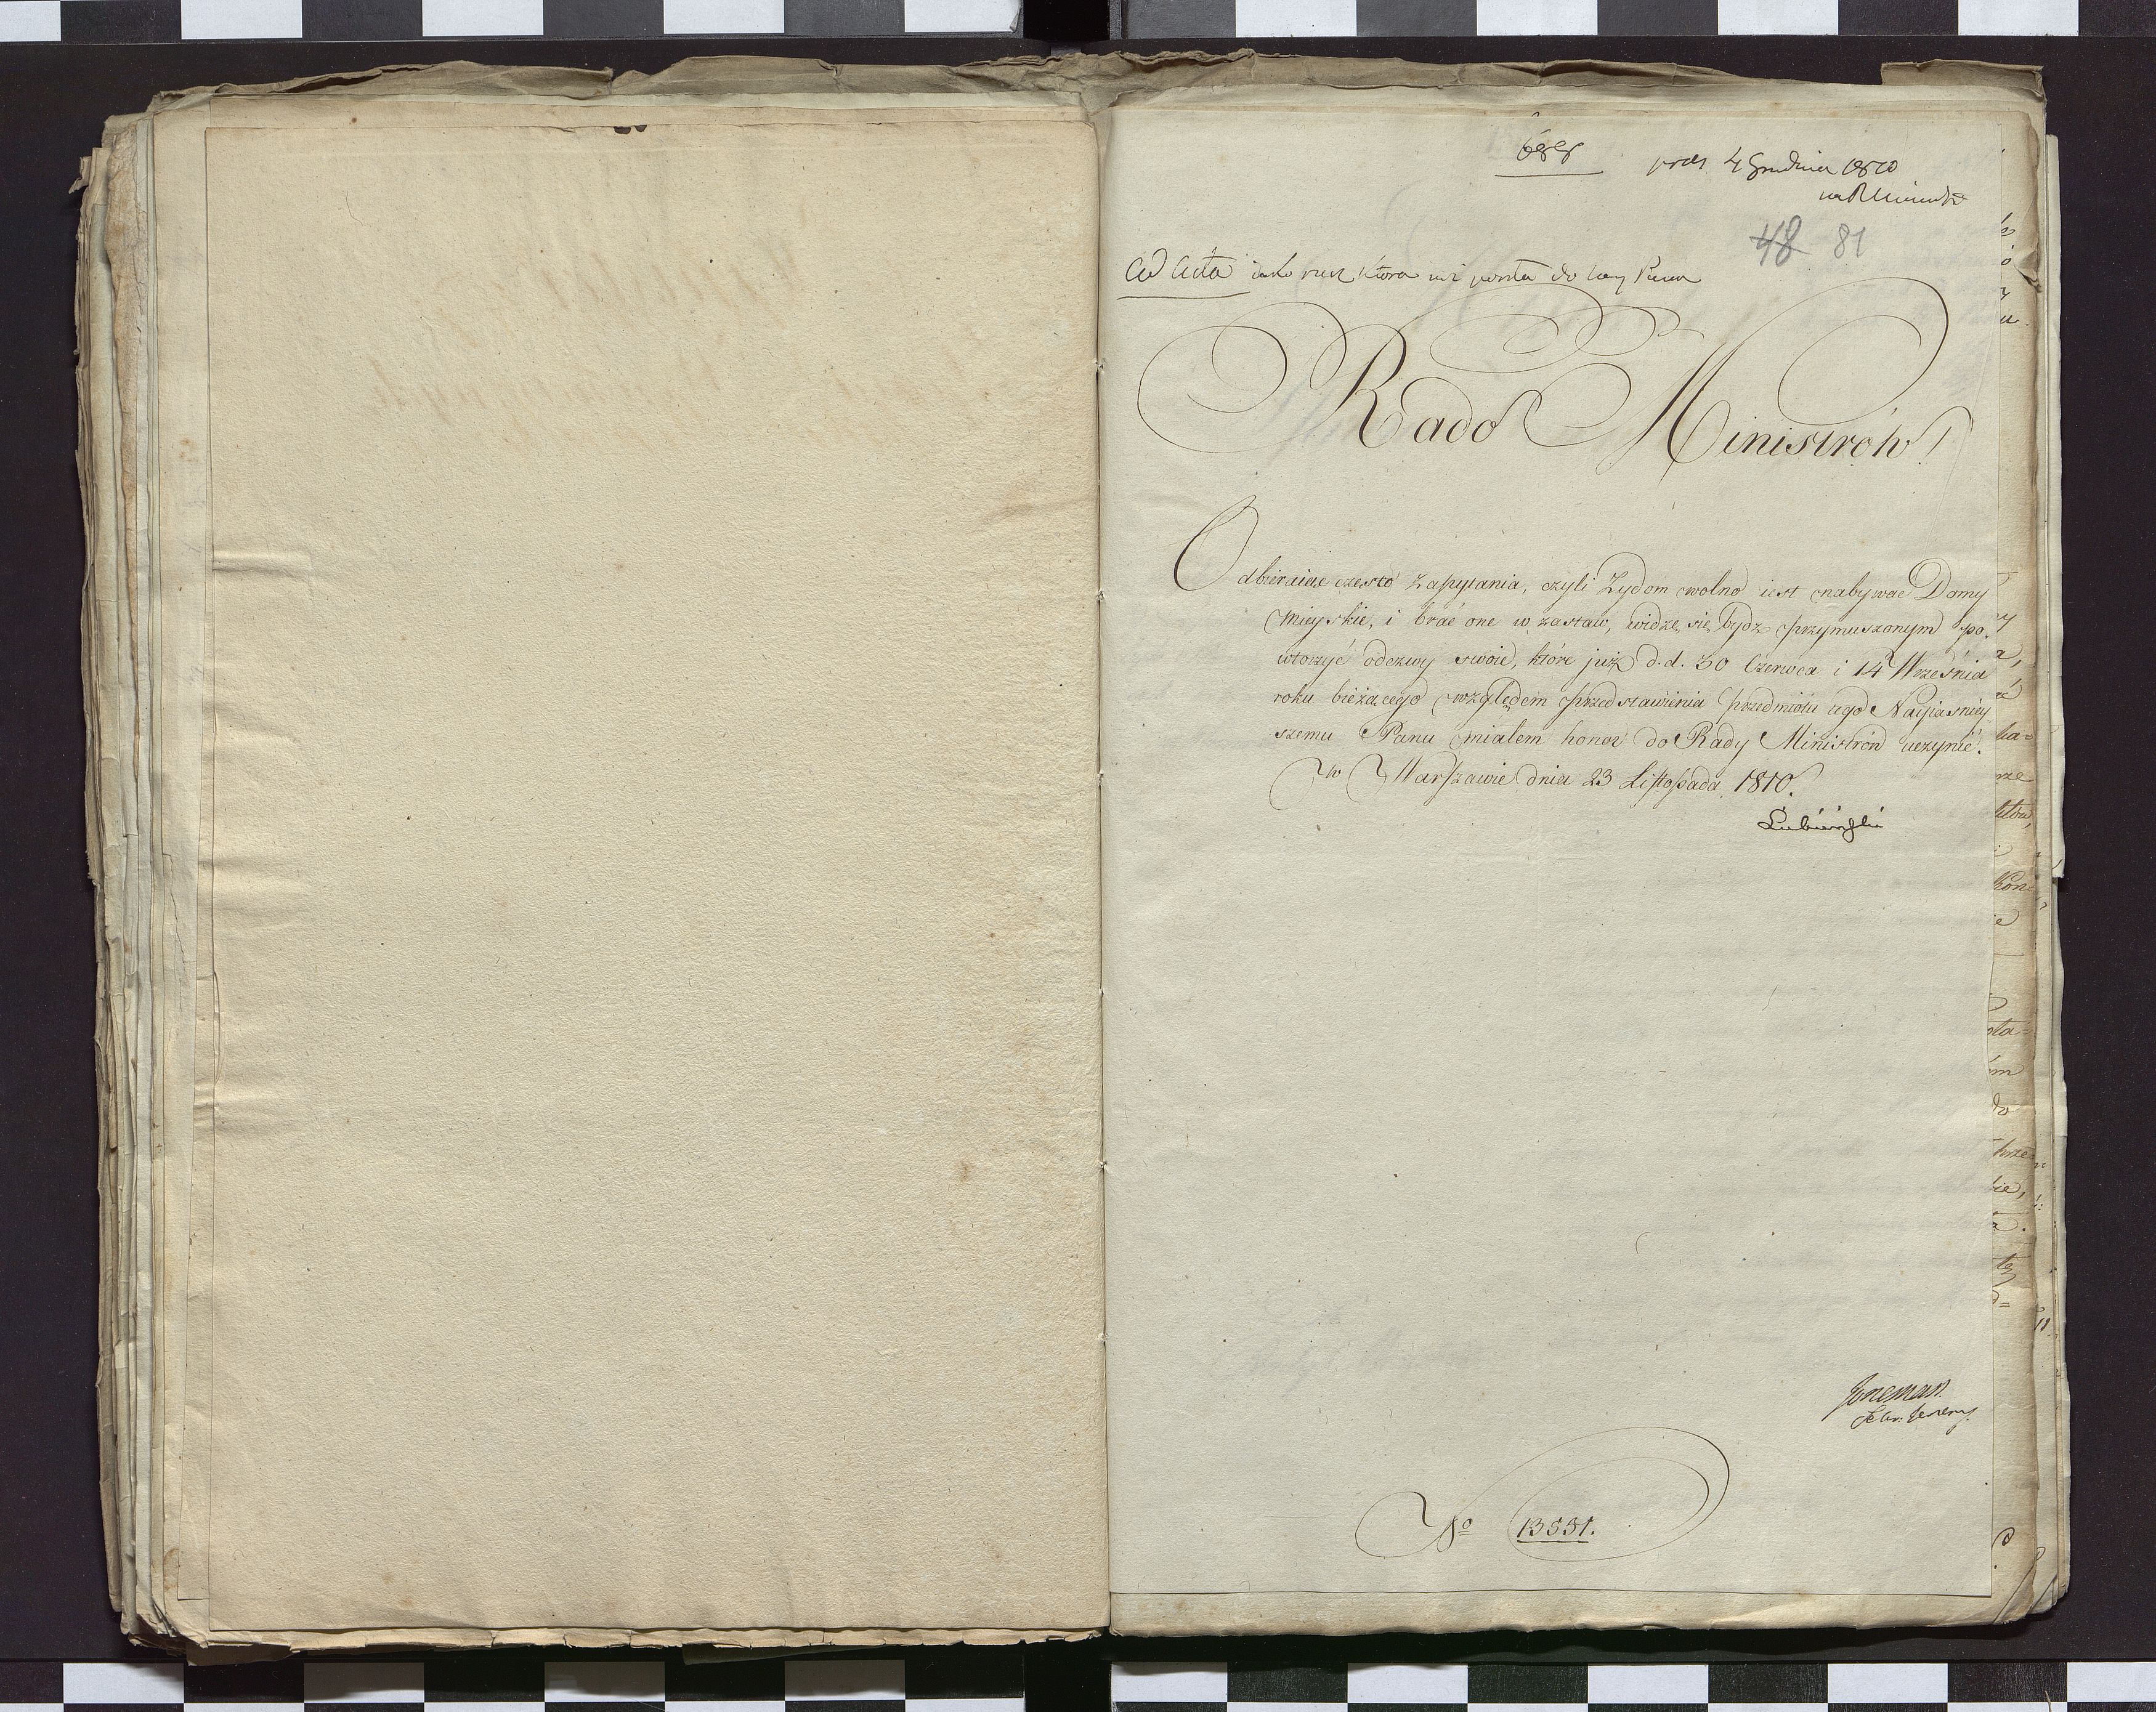 pres 4 Grudnia 1810
48 81
ad acta iako rzecz która iuż poszła do Nay Pana
Rado Ministrów!
Odbieraiąc często zapytania, czyli Żydom wolno iest nabywać Domy
mieyskie, i brać one w zastaw, widzę się bydź przymuszonym po-
wtorzyć odezwy swoie, które już d. d. 30 Czerwca i 14 Września
roku bieżącego względem przedstawienia przedmiotu tego Nayiaśniey
szemu Panu miałem honor do Rady Ministrów uczynić.
w Warszawie dnia 23 Listopada 1810.
Łubieński
No 13531.